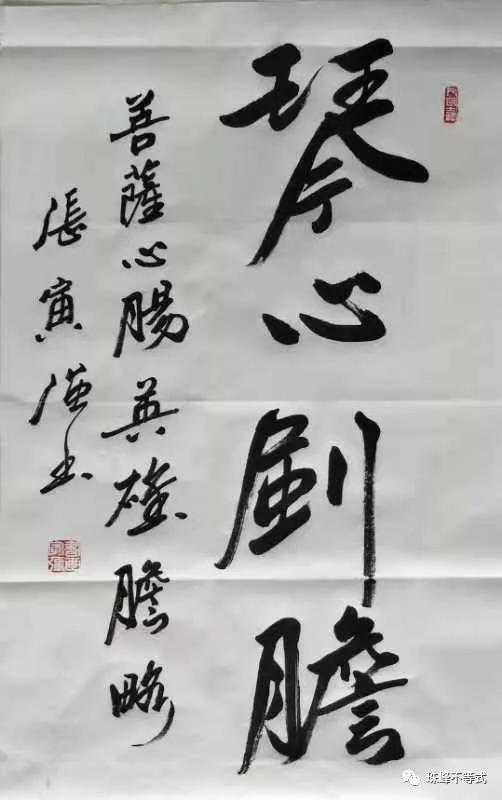 琴心劍膽
菩薩心腸英雄膽略
張寅书
珠峰不等式